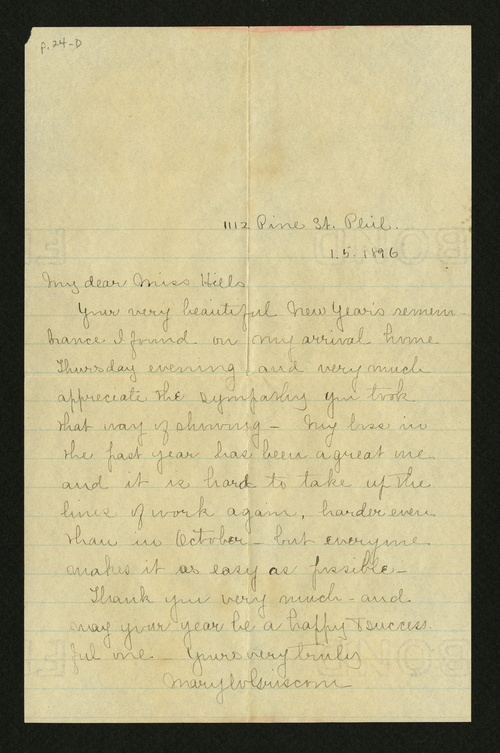 p. 24-D
1112 Pine St. Phil.
1.5.1896
My dear Miss Hills
Your very beautiful New Year's remem
brance I found on my arrival home
Thursday evening and very much
appreciate the sympathy you took
that way of showing - My loss in
the past year has been a great one
and it is hard to take up the
lines of work again, harder even
than in October - but everyone
makes it as easy as possible -
Thank you very much - and
may your year be a happy & success-
ful one Yours very truly
Mary W Griscom
BOND